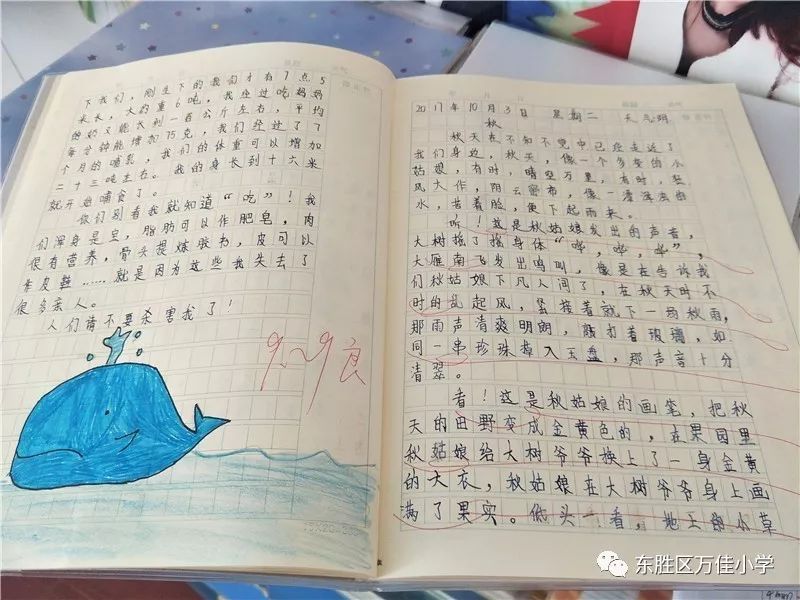 下我们，刚生下的我们才有7点5
米长，大约重6吨，我经过吃妈妈
的奶又能长到一百公斤左右，平均
每分钟能增加75克，我们经过了7
个月的哺乳，我们的体重可以增加
二十三吨左右。我的身长到十六米
就开始哺食了。
你们别看我就知道“吃”！我
们浑身是宝，脂肪可以作肥皂，肉
很有营养，骨头提炼胶书，皮可以
作皮鞋……就是因为这些我失去了
很多亲人。
人们请不要杀害我了！
9.29良
2017年10月3日 星期二 天气阴
秋
秋天在不知不觉中已经走近了
我们身边，秋天，像一个多变的小
姑娘，有时，晴空万里，有时，狂
风大作，阴云密布，像一
水，苦着脸，便下起雨来。
听！这是秋姑娘发出的声音，
大树摇了摇身体“哗，哗，哗”，
大雁南飞发出鸣叫，像是在告诉我
们秋姑娘下凡人间了，在秋天时不
时的乱起风，紧接着就下一场秋雨，
那雨声清爽明朗，敲打着玻璃，如
同一串珍珠掉入玉盘，那声音十分
清翠。
看！这是秋姑娘的画笔，把秋
天的田野变成金黄色的，在果园里
秋姑娘给大树爷爷换上了一身金黄
的大衣，秋姑娘在大树爷爷身上画
满了果实。低头一看，地上的小草
东胜区万佳小学